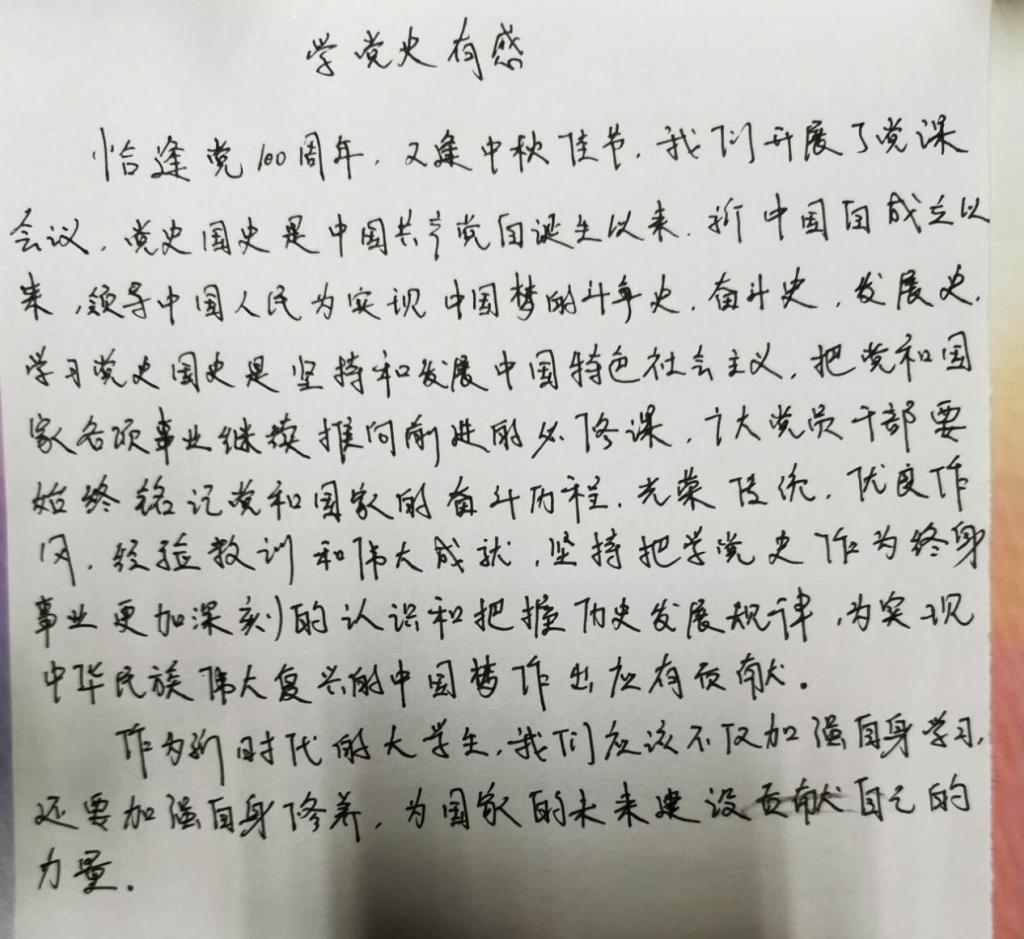 学党史有感
恰逢党100周年,又逢中秋佳节,我们开展了党课
会议,党史国史是中国共产党自诞生以来,新中国自成立以
来,领导中国人民为实现中国梦的斗争史,奋斗史,发展史,
学习党史国史是坚持和发展中国特色社会主义,把党和国
家各项事业继续推向前进的必修课,广大党员干部要
始终铭记党和国家的奋斗历程,光荣传统,优良作
风,经验教训和伟大成就,坚持把学党史作为终身
事业更加深刻的认识和把握历史发展规律,为实现
中华民族伟大复兴的中国梦作出应有贡献。
作为新时代的大学生,我们应该不仅加强自身学习,
还要加强自身修养,为国家的未来建设贡献自己的
力量.